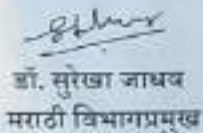 डॉ. सुरेखा जाधव
मराठी विभागप्रमुख